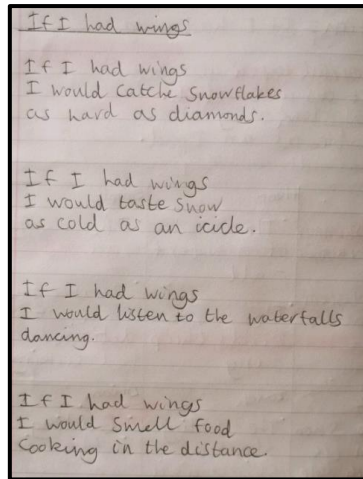 If I had wings
If I had wings
I would catche snowflakes
as hard as diamonds.
If I had wings
I would taste snow
as cold as an icicle.
If I had wings
I would listen to the waterfalls
dancing.
If I had wings
I would smell food
cooking in the distance.